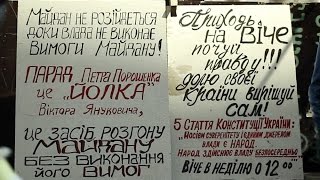 Майдан не розійдеться
доки влада не виконає
вимоги Майдану!
ПАРАД Петра Порошенка
це "ЙОЛКА"
Віктора Януковича,
це засіб розгону
Майдану
БЕЗ ВИКОНАННЯ
його ВИМОГ
Приходь
на ВІЧЕ
почуй
правду!!!
долю своєї
країни вирішуй
САМ!
5 СТАТТЯ КОНСТИТУЦІЇ УКРАЇНИ:
"Носієм суверенітету і єдиним джерелом
влади є НАРОД.
НАРОД здійснює владу БЕЗПОСЕРЕДНЬО
ВІЧЕ В НЕДІЛЮ О 12 00